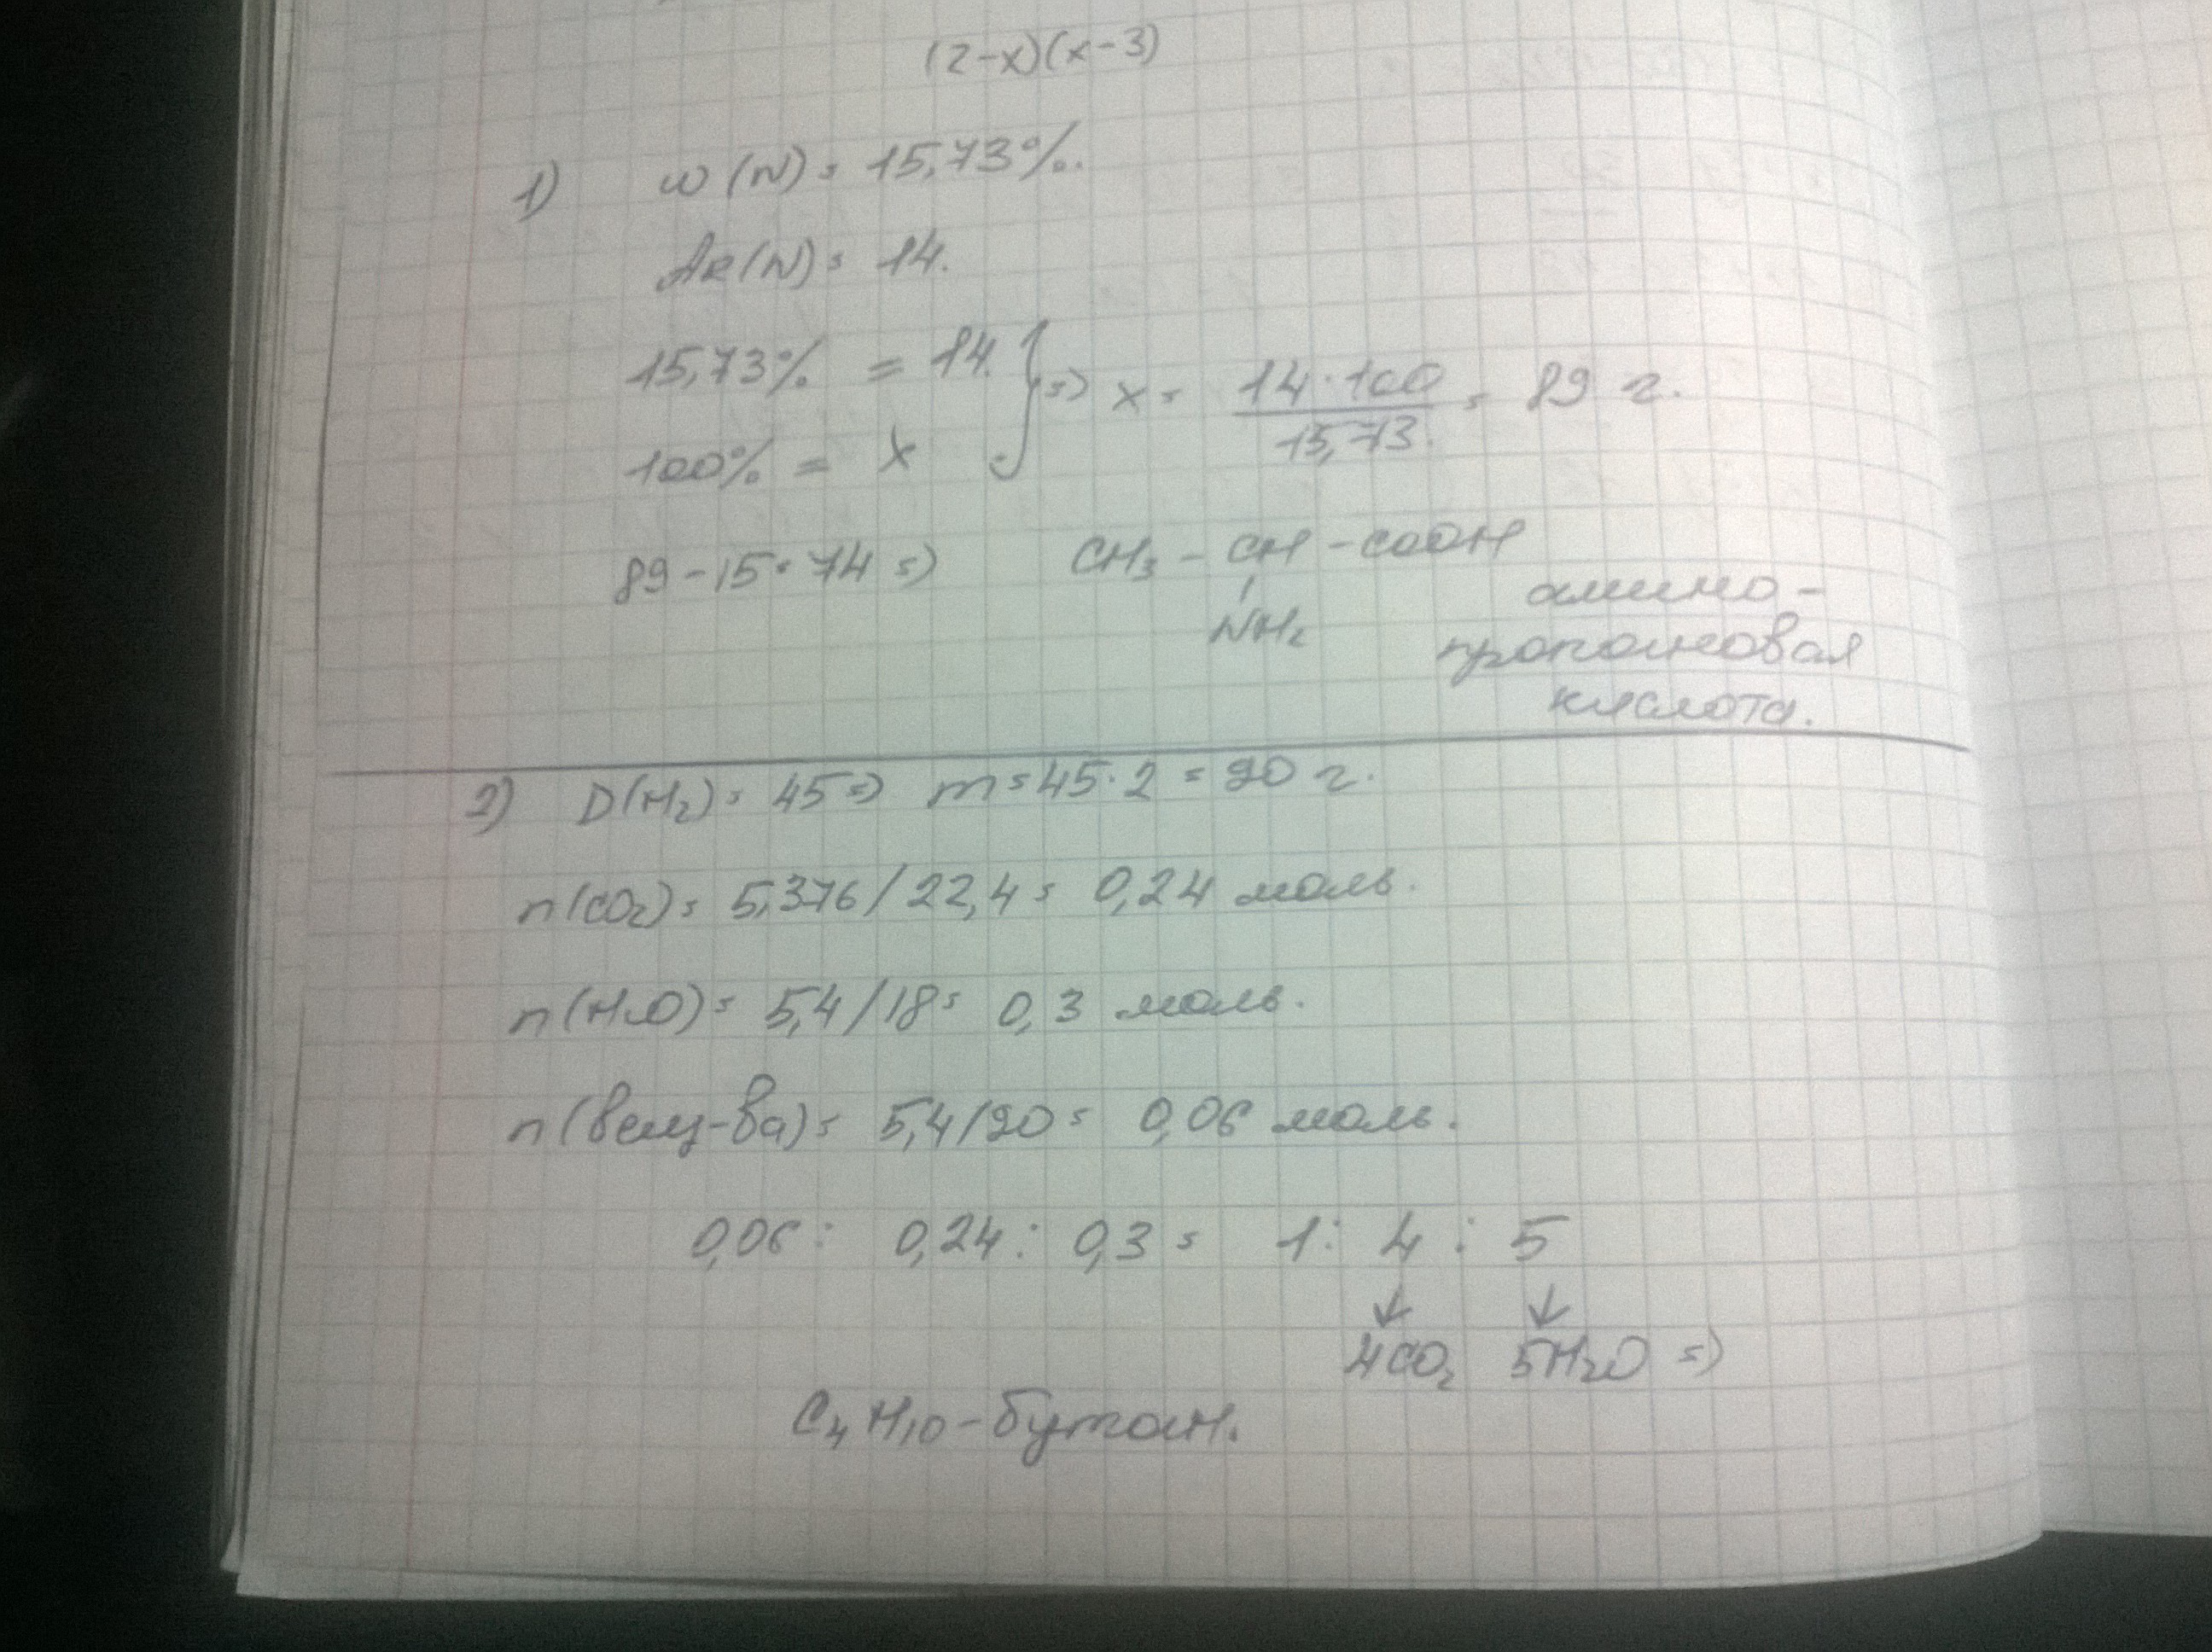 (2-x)(x-3)
1) w(N) = 15,73%.
Ar(N) = 14.
15,73% = 14. } => x = 14·100 / 15,73. = 89 г.
100% = x
89-15=74 => CH₃ - CH - COOH
NH₂
амино-
пропоновая
кислота.
2) D(H₂) = 45 => m = 45·2 = 90 г.
n(CO₂) = 5,376/22,4 = 0,24 моль.
n(H₂O) = 5,4/18 = 0,3 моль.
n(вещ-ва) = 5,4/90 = 0,06 моль.
0,06 : 0,24 : 0,3 = 1 : 4 : 5
↓ ↓
4CO₂ 5H₂O =>
C₄H₁₀ - бутан.